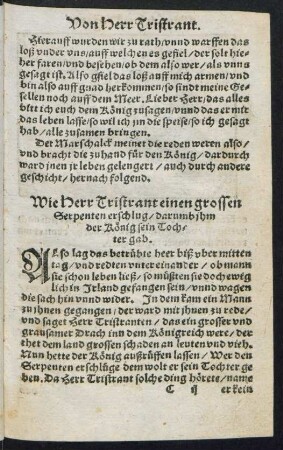 Von Herr Tristrant.
Hierauff wurden wir zu rath/vnnd warffen das
loß vnder vns/auff welchen es gefiel/der solt hie-
her faren/vnd besehen/ob dem also wer/als vnns
gesagt ist. Also gfiel das loß auff mich armen/vnd
bin also auff gnad herkommen/so sindt meine Ge-
sellen noch auff dem Meer. Lieber Herr/das alles
bitt ich euch dem König zusagen/vnnd das er mir
das leben lasse/so wil ich jm die speise/so ich gesagt
hab/alle zusamen bringen.
Der Marschalck meinet die reden weren also/
vnd bracht die zuhand für den König/dardurch
ward jnen jr leben gelengert/auch durch andere
geschicht/hernach folgend.
Wie Herr Tristrant einen grossen
Serpenten erschlug/darumb jhm
der König sein Toch-
ter gab.
Also lag das betrübte heer biß vber mitten
tag/vnd redten vntereinander/ob mann
sie schon leben ließ/so müsten sie doch ewig-
lich in Irland gefangen sein/vnnd wagen
die sach hin vnnd wider. In dem kam ein Mann
zu jhnen gegangen/der ward mit jhnen zu rede/
vnd saget Herr Tristranten/das ein grosser vnd
grausamer Drach inn dem Königreich wer/der
thet dem land grossen schaden an leuten vnd vieh.
Nun hette der König außrüffen lassen/Wer den
Serpenten erschlüge dem wolt er sein Tochter ge
ben. Da Herr Tristrant solche ding hörete/name
C ij er kein